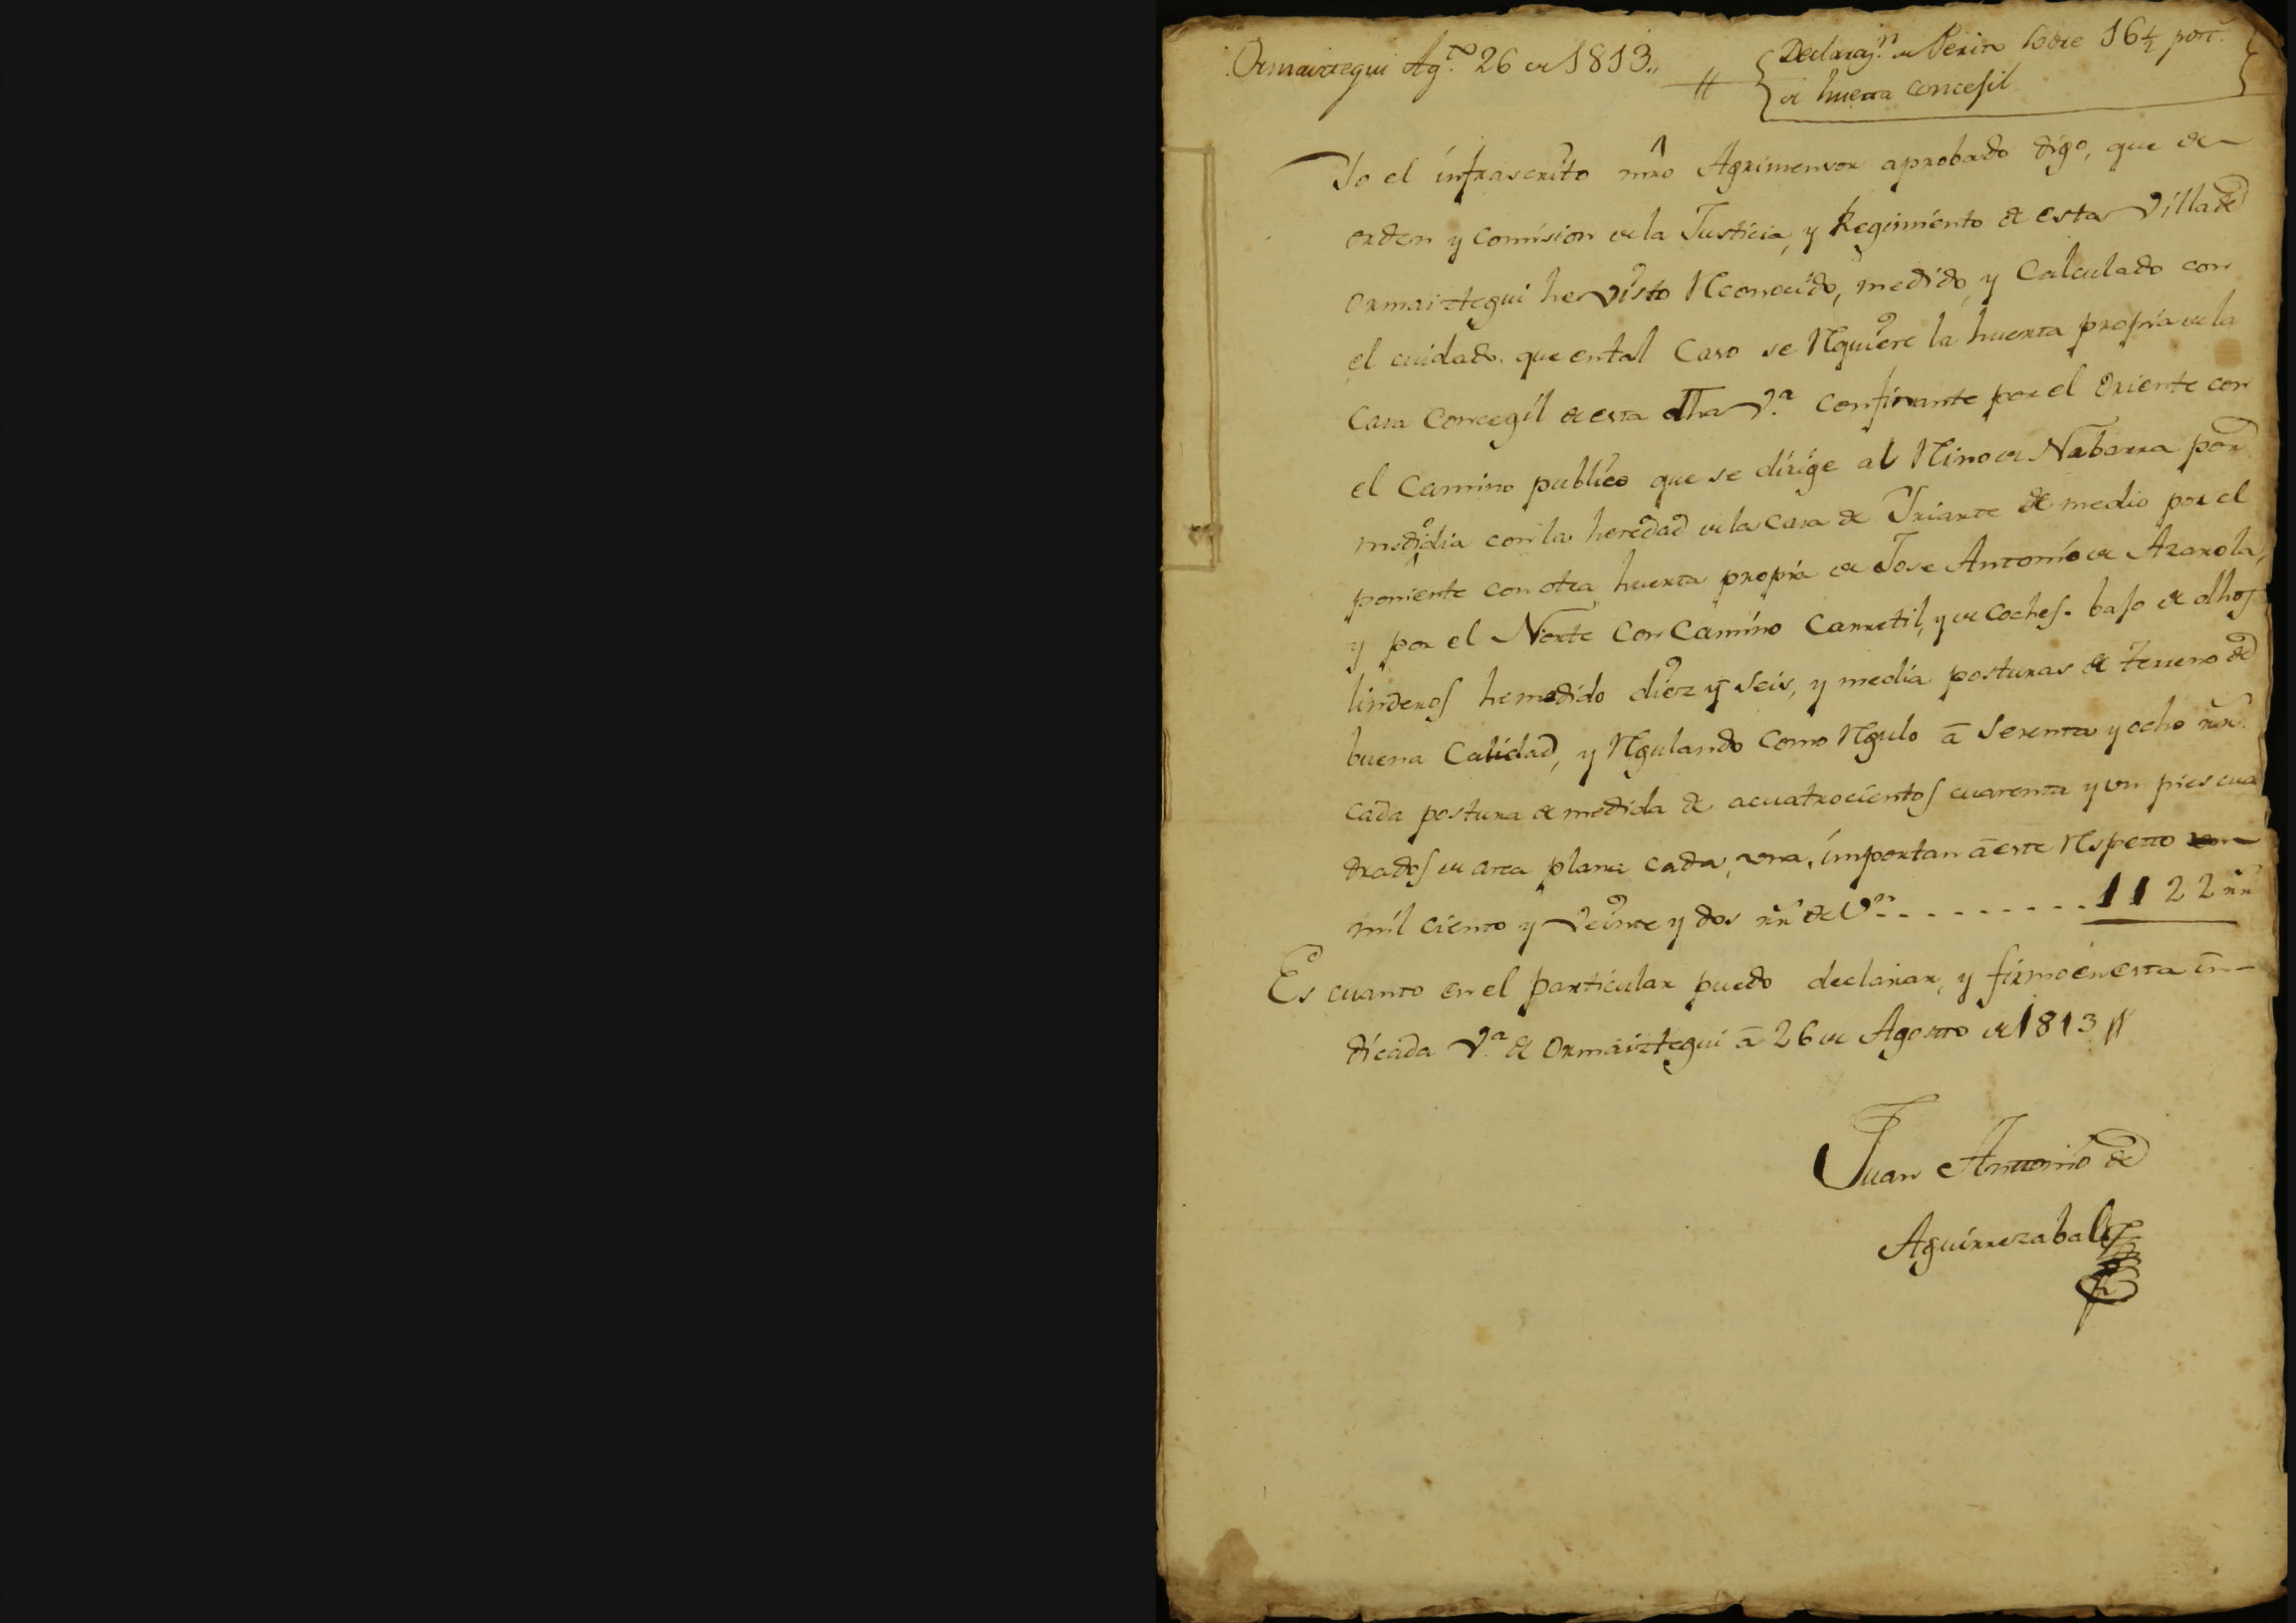 Ormaiztegui Ag.to 26 de 1813,,
Declaraz.n de Perito sobre 16 1/2 post.
de huerta concesil
Yo el infrascrito mro Agrimensor aprobado digo, que de
orden y comision de la Justicia, y Regimiento de esta Villa de
Ormaiztegui he visto Reconocido, medido, y Calculado con
el cuidado que en tal Caso se Requiere la huerta propia de la
Casa Concegil de esta dha V.a confinante por el Oriente con
el Camino publico que se dirige al Reino de Nabarra por
mediodia con la heredad de la Casa de Iriarte de medio por el
poniente con otra huerta propia de Jose Antonio de Azarola,
y por el Norte con Camino Carretil, y de coches. bajo de dhos
linderos he medido diez y seis, y media posturas de terreno de
buena Calidad, y Regulando como Regulo a sesenta y ocho rr.
cada postura de medida de a cuatrocientos cuarenta y un pies cua
drados de area plana cada una, importan a este Respetto
mil ciento y veinte y dos rr de V.n - - - - - - - - - - 1122 rr
Es cuanto en el particular puedo declarar, y firmo en esta in-
dicada V.a de Ormaiztegui a 26 de Agosto de 1813 //
Juan Antonio de
Aguirrezabal